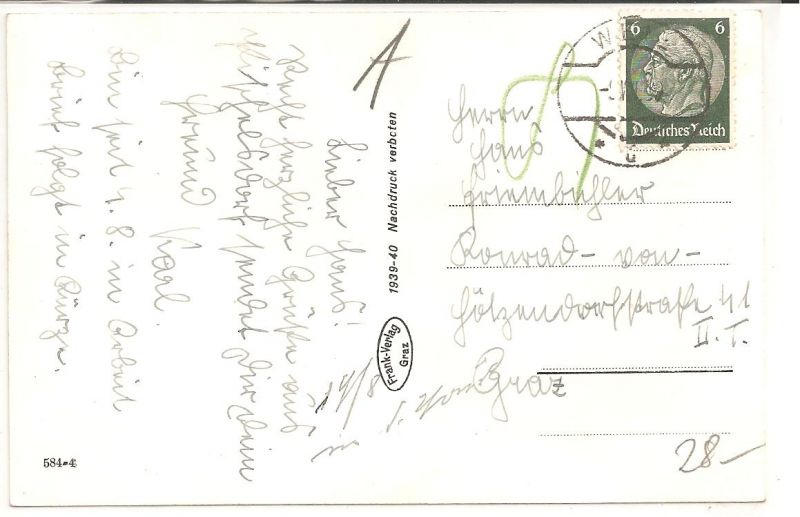 Lieber Hans!
Recht herzliche Grüße aus
sendet Dir Dein
Freund
Karl.
Bin seit 4. 8. in Arbeit
Brief folgt in Kürze.
A
1939-40 Nachdruck verboten
Frank-Verlag
Graz
19/8
584-4
6 6
Deutsches Reich
Herrn
Hans
Konrad-von-
Hötzendorfstraße 41
II. T.
Graz
28-